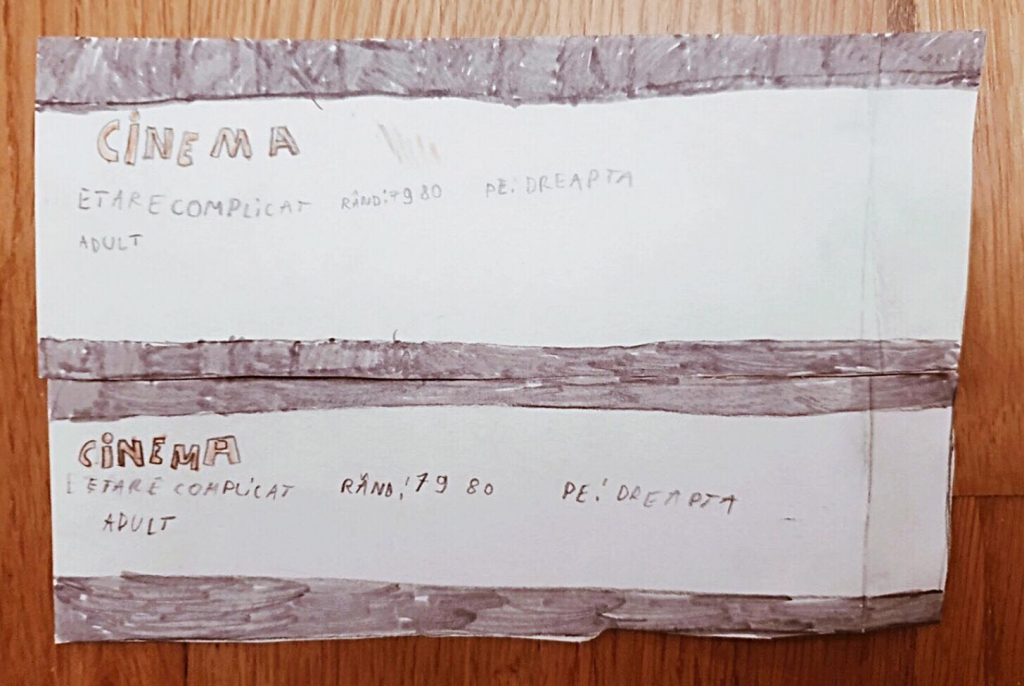 CiNEMA
ETARE COMPLICAT RÂND: 79 80 PE: DREAPTA
ADULT
CiNEMA
ETARE COMPLICAT RÂND: 79 80 PE: DREAPTA
ADULT